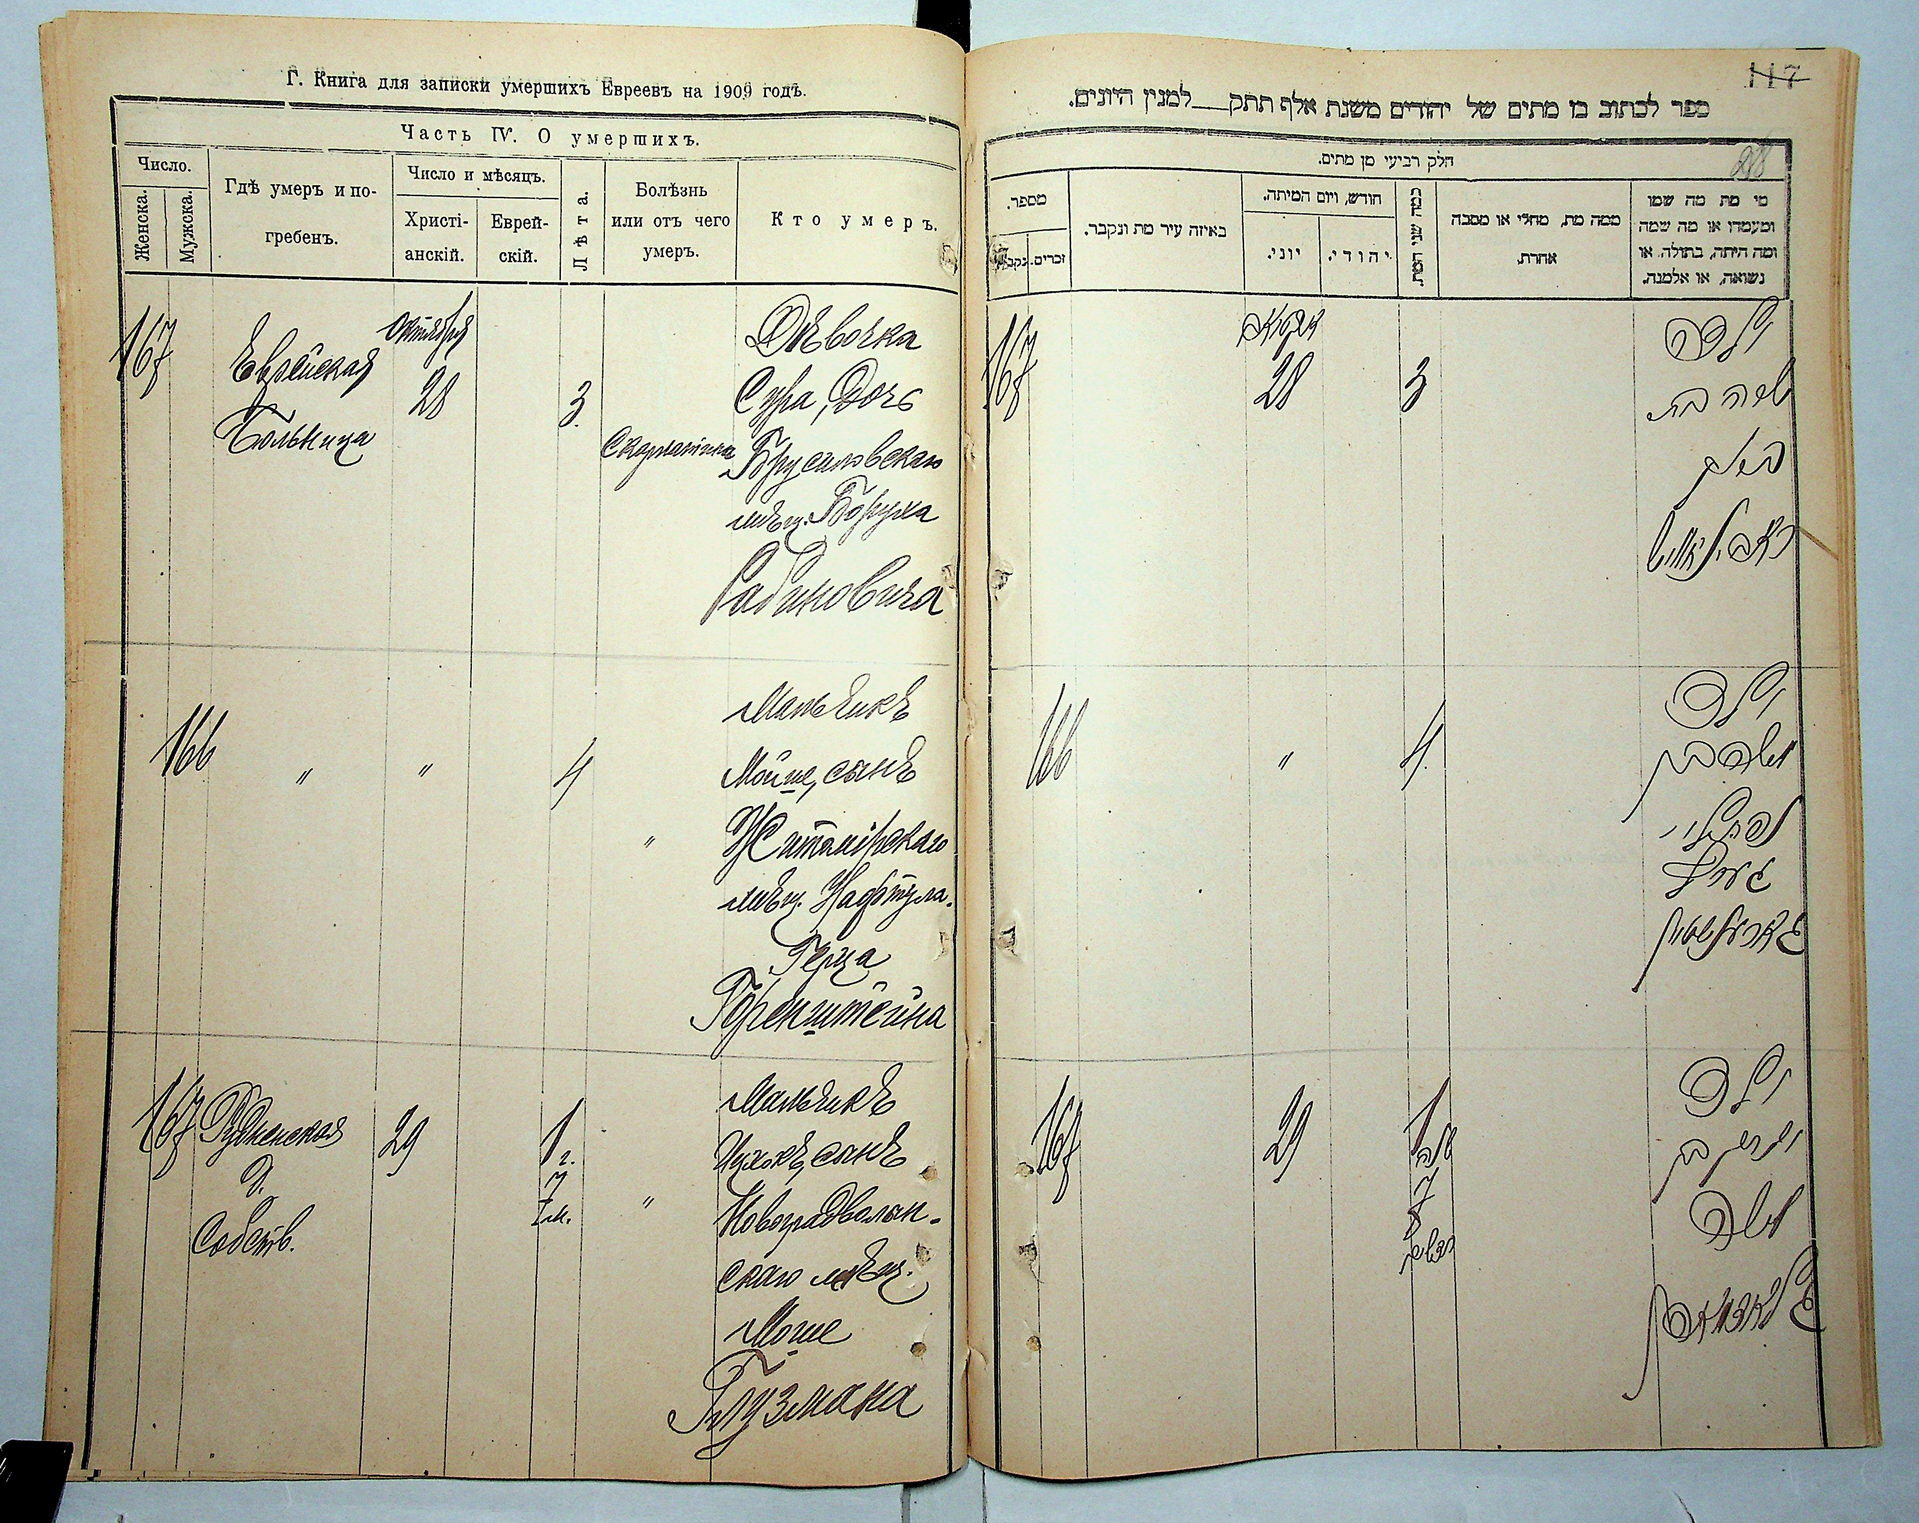 Г. Книга для записки умершихъ Евреевъ на 1909 годъ.
Часть IV. О умершихъ.
Число.
Женска.
Мужска.
Гдѣ умеръ и по-
гребенъ.
Число и мѣсяцъ.
Христі-
анскій.
Еврей-
скій.
Лѣта.
Болѣзнь
или отъ чего
умеръ.
Кто умеръ.
167
Еврейская
Больница
Октября
28
3
Скарлатина
Дѣвочка
Сура, Дочь
Брусиловскаго
мѣщ. Боруха
Рабиновича
166
"
"
4
"
Мальчикъ
Мойше, сынъ
Житомірскаго
мѣщ. Нафтула-
Герца
Боренштейна
167
Рудненская
д.
Собств.
29
1 г.
7 м.
"
Мальчикъ
Ицхокъ, сынъ
Новоградволын-
скаго мѣщ.
Моше
Глузмана
117
ספר לכתוב בו מתים של יהודים משנת אלף תתק__למנין היונים.
חלק רביעי מן מתים.
מספר.
זכרים.
נקבות
באיזה עיר מת ונקבר.
חודש, ויום המיתה.
יוני.
יהודי.
כמה שני המת.
ממה מת, מחלי או מסבה
אחרת.
מי מת מה שמו
ומעמדו או מה שמה
ומה היתה, בתולה או
נשואה, או אלמנה.
167
28
3
ילדה
שרה בת
ברוך
ראבינאוויטש
166
"
4
ילד
משה בן
נפתלי
הערץ
167
29
1
שנה
7
ילד
יצחק בן
משה
גלוזמאן